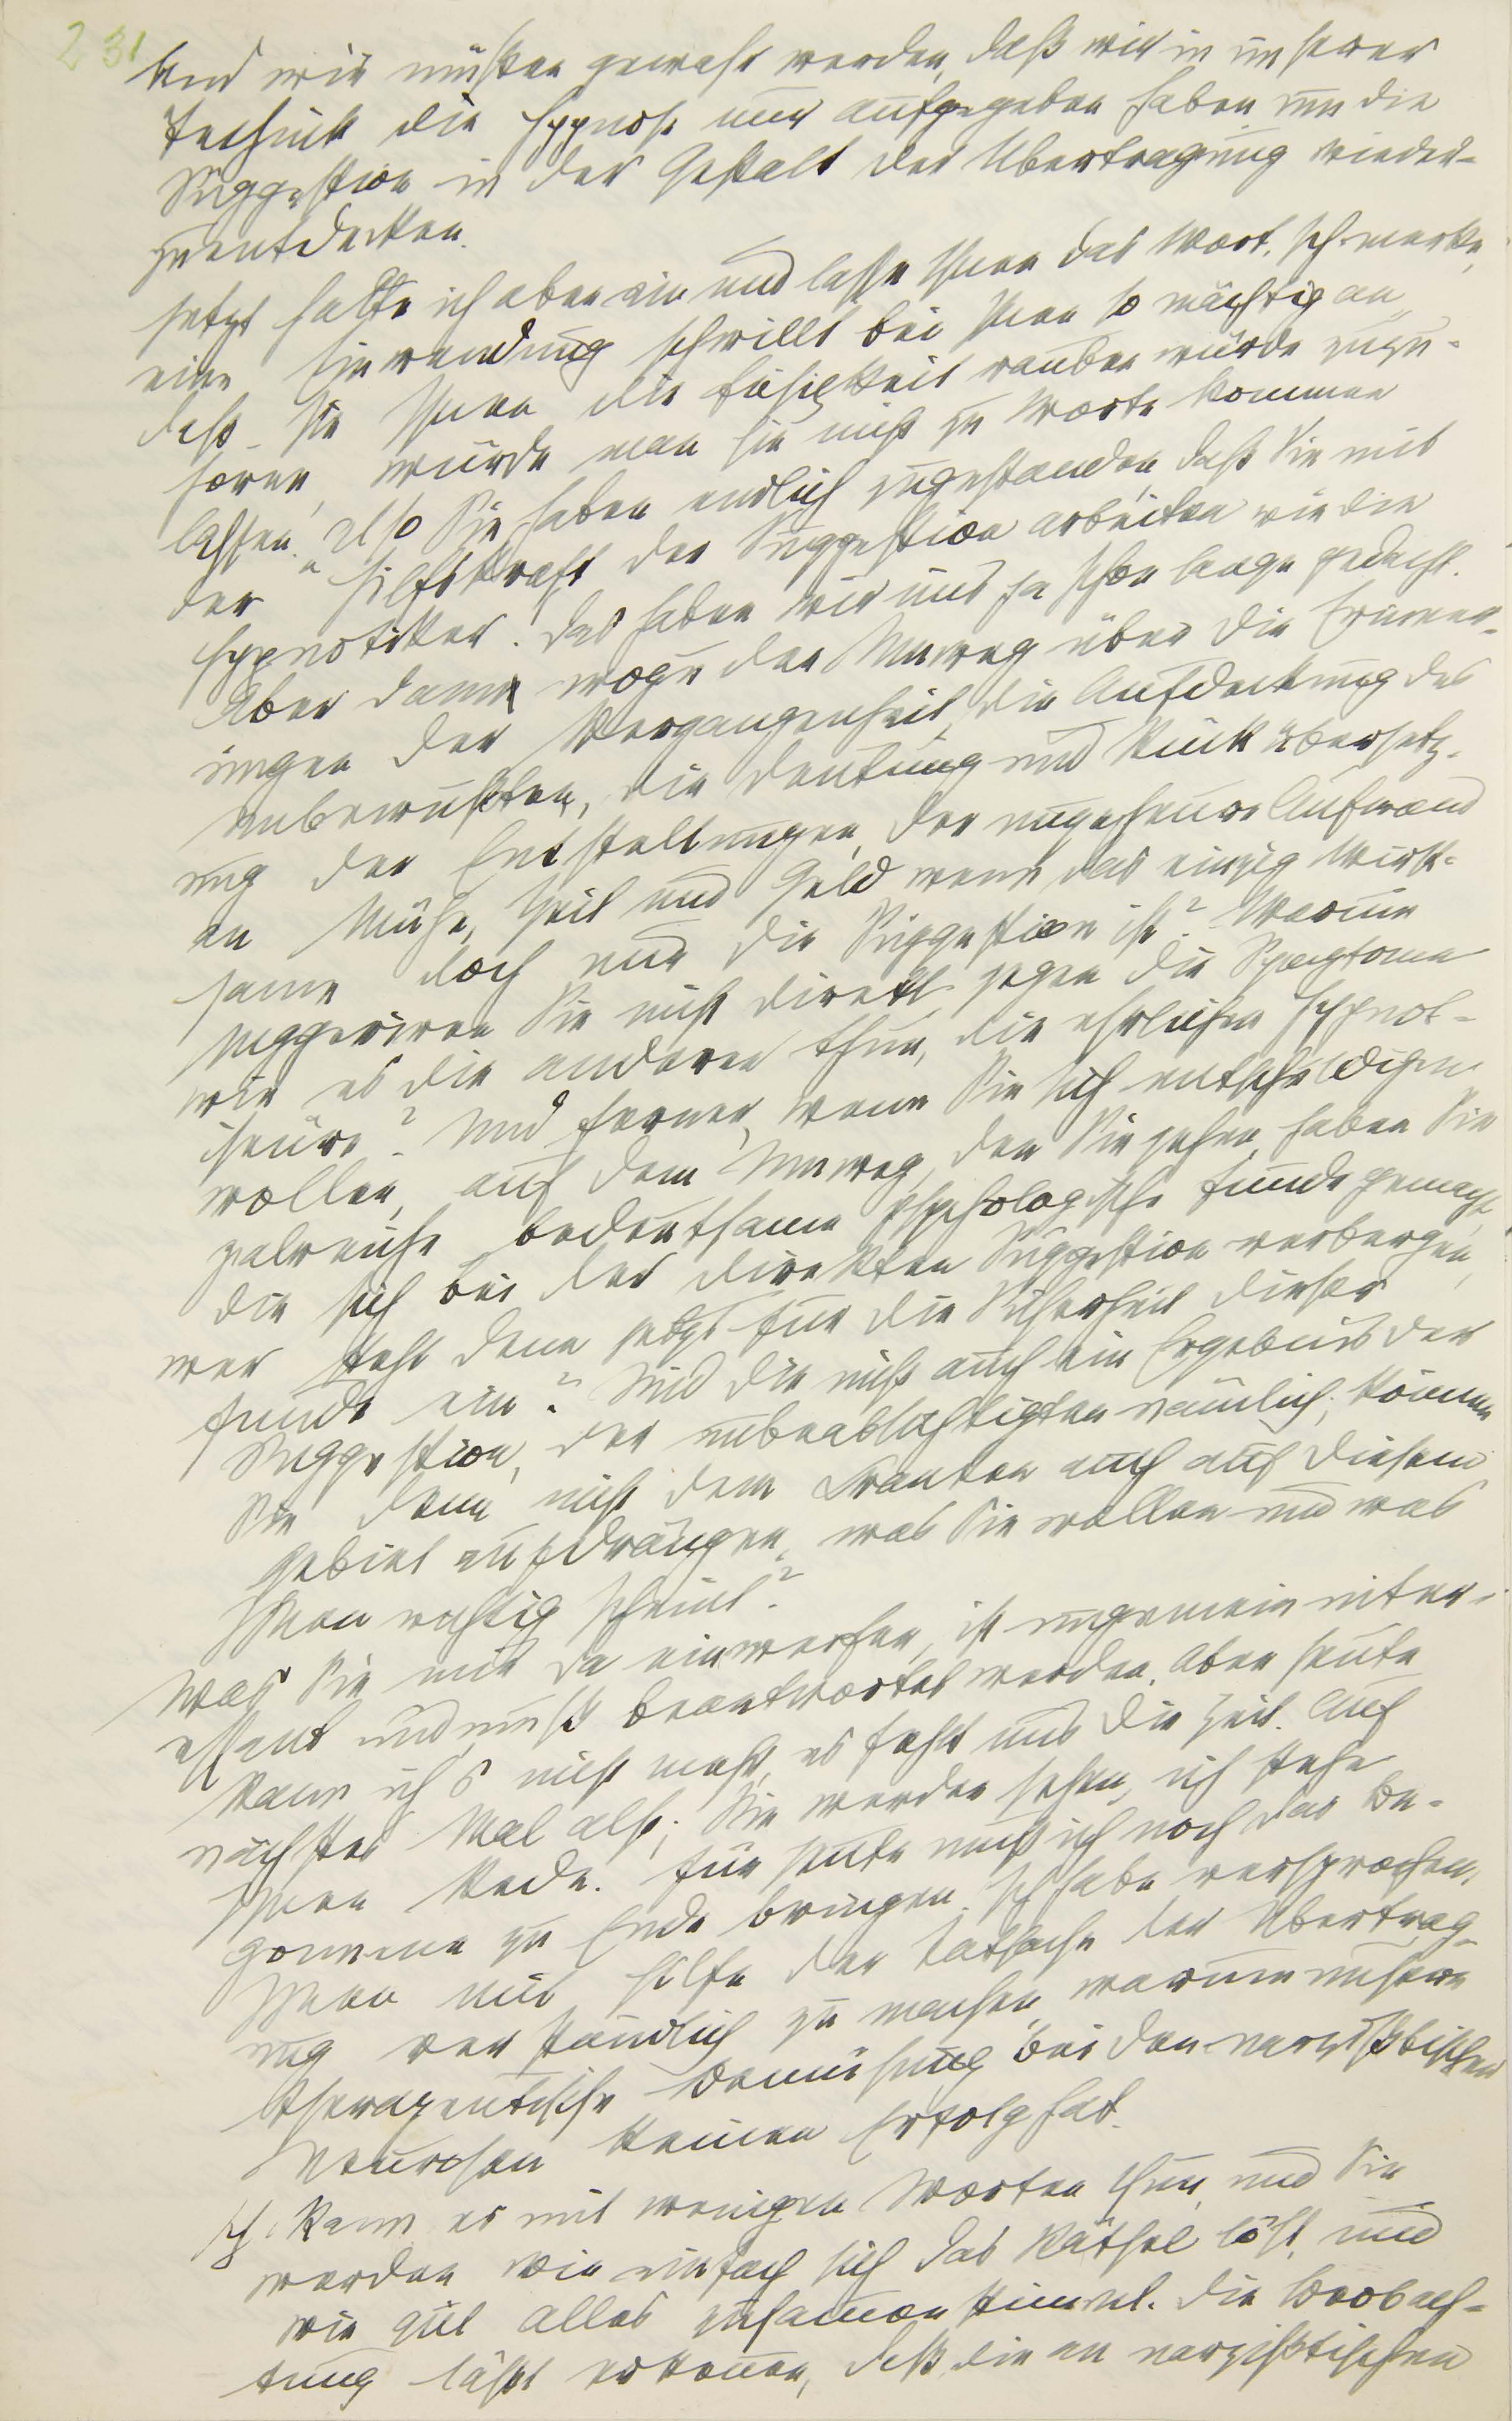 231
Und wir müßen gewahr werden, daß wir in unserer
Technik die Hypnose nur aufgegeben haben um die
Suggestion in der Gestalt der Übertragung wieder-
zuentdecken.
Jetzt halte ich aber ein und lasse Ihnen das Wort. Ich merke,
eine Einwendung schwillt bei Ihnen so mächtig an,
daß sie Ihnen die Fähigkeit rauben würde zuzu-
hören, würde man sie nicht zu Worte kommen
lassen. „Also Sie haben endlich zugestanden, daß Sie mit
der Hilfskraft der Suggestion arbeiten wie die
Hypnotiker. Das haben wir uns ja schon lange gedacht.
Aber dann wozu der Umweg über die Erinner-
ungen der Vergangenheit, die Aufdeckung des
Unbewußten, die Deutung und Rückübersetz-
ung der Entstellungen, der ungeheure Aufwand
an Mühe, Zeit und Geld, wenn das einzig Wirk-
same doch nur die Suggestion ist? Warum
suggeriren Sie nicht direkt gegen die Symptome
wie es die anderen thun, die ehrlichen Hypnot-
iseure? Und ferner, wenn Sie sich entschuldigen
wollen, auf dem Umweg, den Sie gehen, haben Sie
zalreiche bedeutsame psychologische Funde gemacht,
die sich bei der direkten Suggestion verbergen,
wer steht denn jetzt für die Sicherheit dieser
Funde ein? Sind die nicht auch ein Ergebnis der
Suggestion, der unbeabsichtigten nämlich, können
Sie denn nicht dem Kranken auch auf diesem
Gebiet aufdrängen, was Sie wollen und was
Ihnen richtig scheint?
Was Sie mir da einwerfen, ist ungemein inter-
essant und muß beantwortet werden. Aber heute
kann ich's nicht mehr, es fehlt uns die Zeit. Auf
nächstes Mal also; Sie werden sehen, ich stehe
Ihnen Rede. Für heute muß ich noch das Be-
gonnene zu Ende bringen. Ich habe versprochen,
Ihnen mit Hilfe der Tatsache der Übertrag-
ung verständlich zu machen, warum unsere
therapeutische Bemühung bei den narzißtischen
Neurosen keinen Erfolg hat.
Ich kann es mit wenigen Worten thun, und Sie
werden wie einfach sich das Rätsel löst, und
wie gut alles zusammenstimmt. Die Beobach-
tung läßt erkennen, daß die an narzißtischen